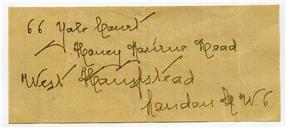 66 Yale Court
Honey Bourne Road
West Hampstead
London N W 6